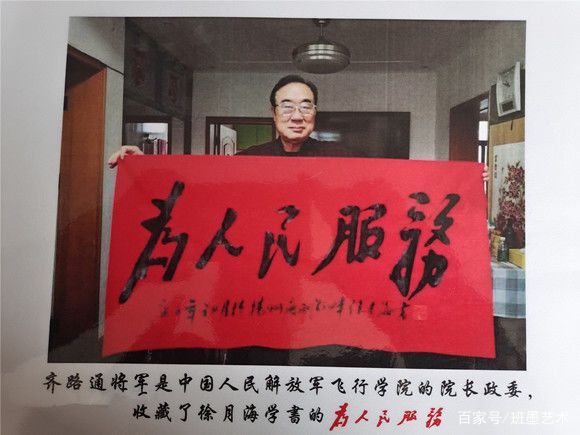 为人民服務
齐路通将军是中国人民解放军飞行学院的院长政委,
收藏了徐月海学書的为人民服務
百家号/班墨艺术